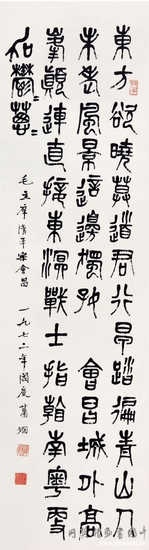 東方欲曉莫道君行早踏遍青山人
未老風景這邊獨好 會昌城外高
峯顛連直接東溟戰士指看南粵更
加鬱〻蔥〻
毛主席清平樂會昌 一九七二年國慶 蕭嫻